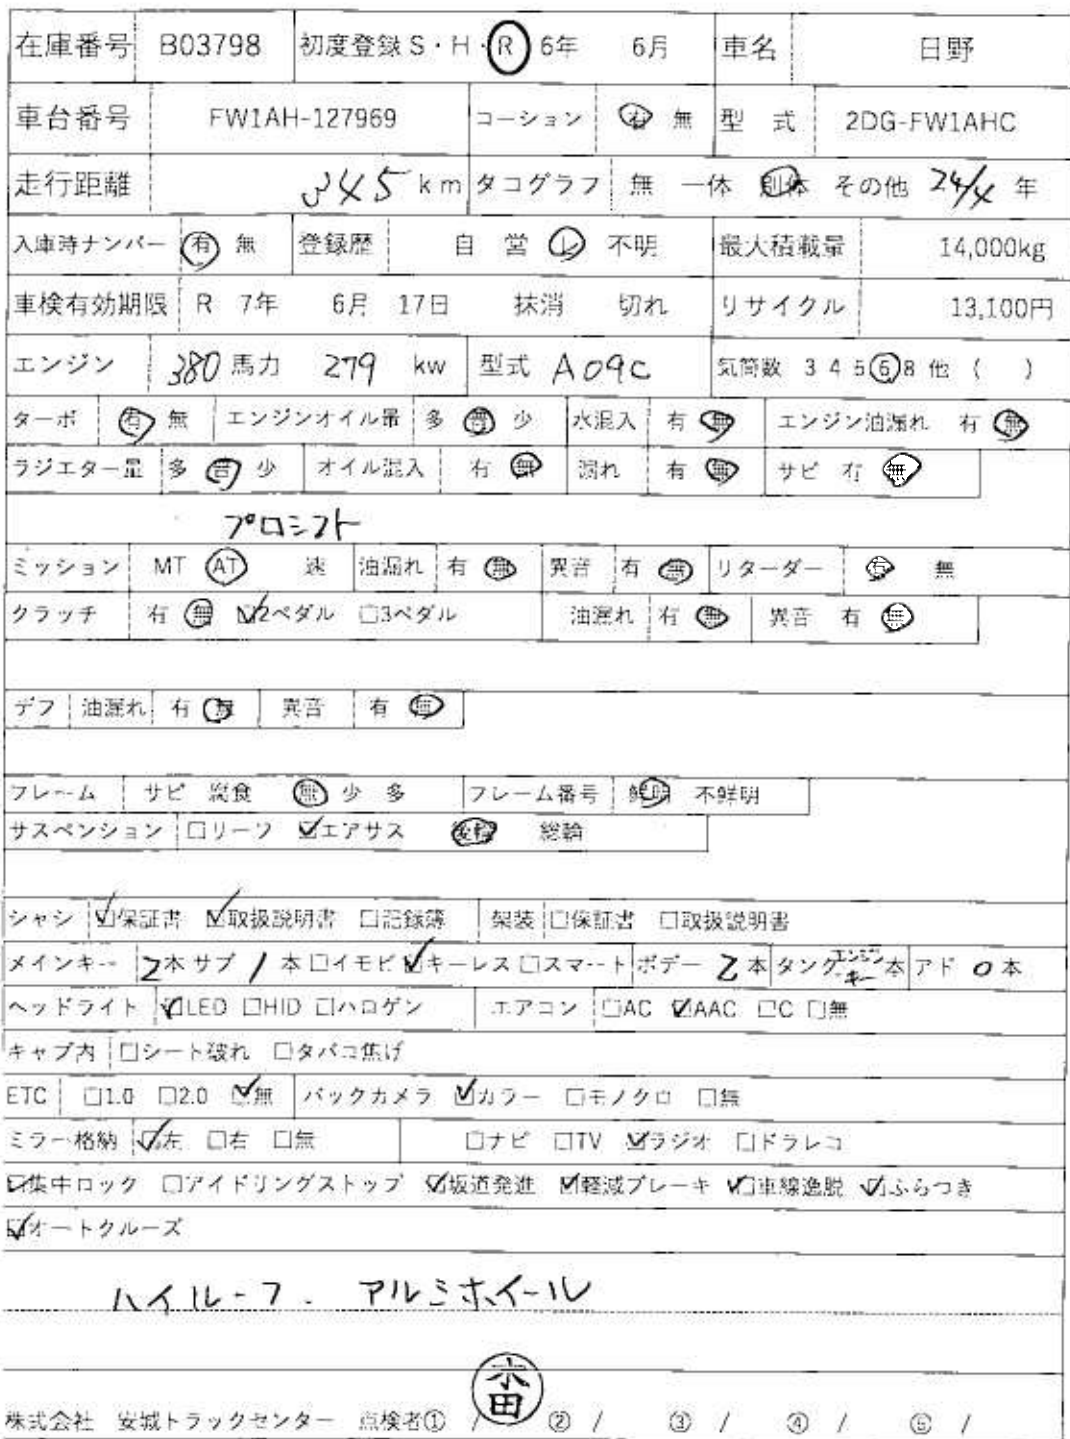 在庫番号 B03798 初度登録 S・H・R 6年 6月 車名 日野
車台番号 FW1AH-127969 コーション 有 無 型 式 2DG-FW1AHC
走行距離 345 km タコグラフ 無 一体 別体 その他 24/4 年
入庫時ナンバー 有 無 登録歴 自 営 不明 最大積載量 14,000kg
車検有効期限 R 7年 6月 17日 抹消 切れ リサイクル 13,100円
エンジン 380 馬力 279 kw 型式 A09C 気筒数 3 4 5 6 8 他 ( )
ターボ 有 無 エンジンオイル量 多 普 少 水混入 有 無 エンジン油漏れ 有 無
ラジエター量 多 普 少 オイル混入 有 無 漏れ 有 無 サビ 有 無
プロシフト
ミッション MT AT 速 油漏れ 有 無 異音 有 無 リターダー 有 無
クラッチ 有 無 ☑2ペダル □3ペダル 油漏れ 有 無 異音 有 無
デフ 油漏れ 有 無 異音 有 無
フレーム サビ 腐食 無 少 多 フレーム番号 鮮明 不鮮明
サスペンション □リーフ ☑エアサス 後輪 総輪
シャシ ☑保証書 ☑取扱説明書 □記録簿 架装 □保証書 □取扱説明書
メインキー 2本 サブ 1 本 □イモビ ☑キーレス □スマート ボデー 2 本 タンク エンジンキー 本 アド 0 本
ヘッドライト ☑LED □HID □ハロゲン エアコン □AC ☑AAC □C □無
キャブ内 □シート破れ □タバコ焦げ
ETC □1.0 □2.0 ☑無 バックカメラ ☑カラー □モノクロ □無
ミラー格納 ☑左 □右 □無 □ナビ □TV ☑ラジオ □ドラレコ
☑集中ロック □アイドリングストップ ☑坂道発進 ☑軽減ブレーキ ☑車線逸脱 ☑ふらつき
☑オートクルーズ
ハイルーフ. アルミホイール
株式会社 安城トラックセンター 点検者① / ② / ③ / ④ / ⑤ /